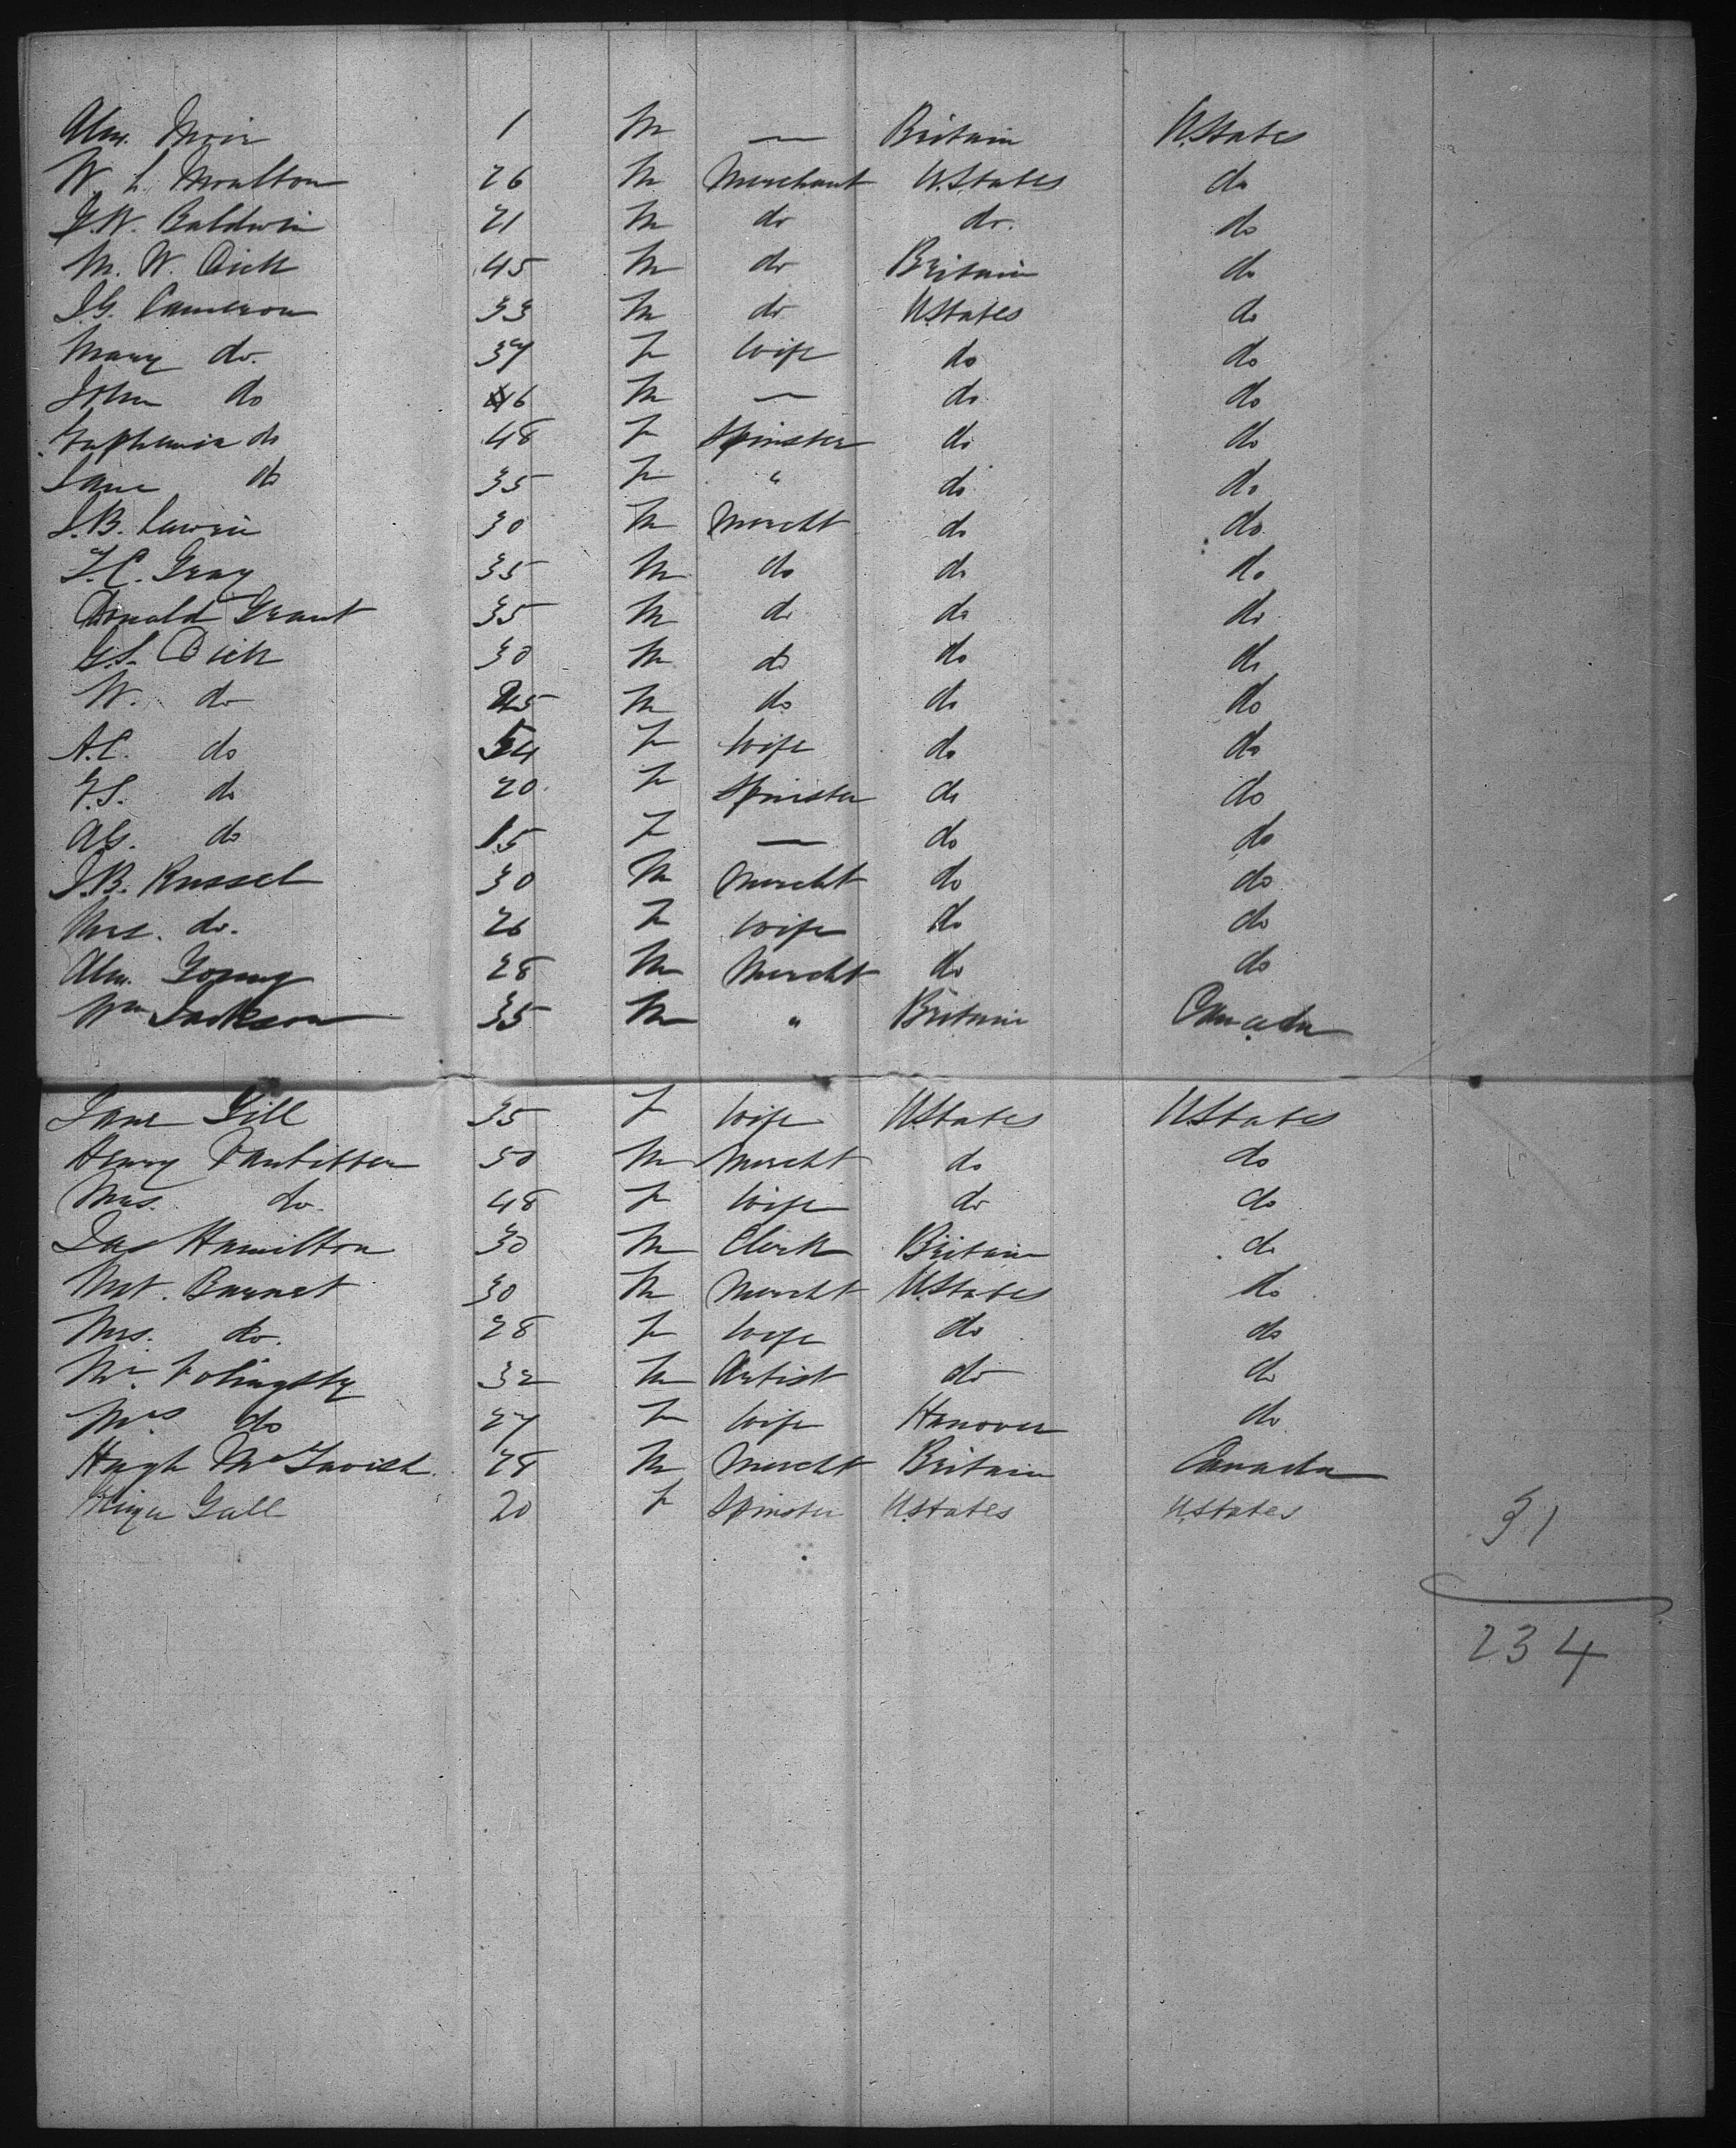 Alex. Moir 1 M — Britain U.States
W. L. Moulton 26 M Merchant U.States do
G.W. Baldwin 21 M do do. do
M. W. Dick 45 M do Britain do
J.G. Cameron 33 M do U.States do
Mary do. 37 F Wife do do
John do 6 M — do do
Euphemia do 48 F Spinster do do
Jane do 35 F " do do
J.B. Lawrie 30 M Mercht do do
F.C. Gray 35 M do do do
Donald Grant 35 M do do do
G.S. Dick 30 M do do do
W. do 45 M do do do
A.C. do 54 F Wife do do
F.S. do 20 F Spinster do do
do 15 F — do do
J.B. Russel 30 M Mercht do do
Mrs. do. 26 F Wife do do
Alex. Young 28 M Mercht do do
Wm Jackson 35 M " Britain Canada
Jane Gill 35 F Wife U.States U.States
Henry 50 M Mercht do do
Mrs. do. 48 F Wife do do
Jas Hamilton 30 M Clerk Britain do
Burnet 30 M Mercht U.States do
Mrs. do. 28 F Wife do do
Mr. Folingsby 32 M Artist do do
Mrs do 27 F Wife Hanover do
Hugh McTavish 28 M Mercht Britain Canada
Gall 20 F Spinster U.States U.States
31
234